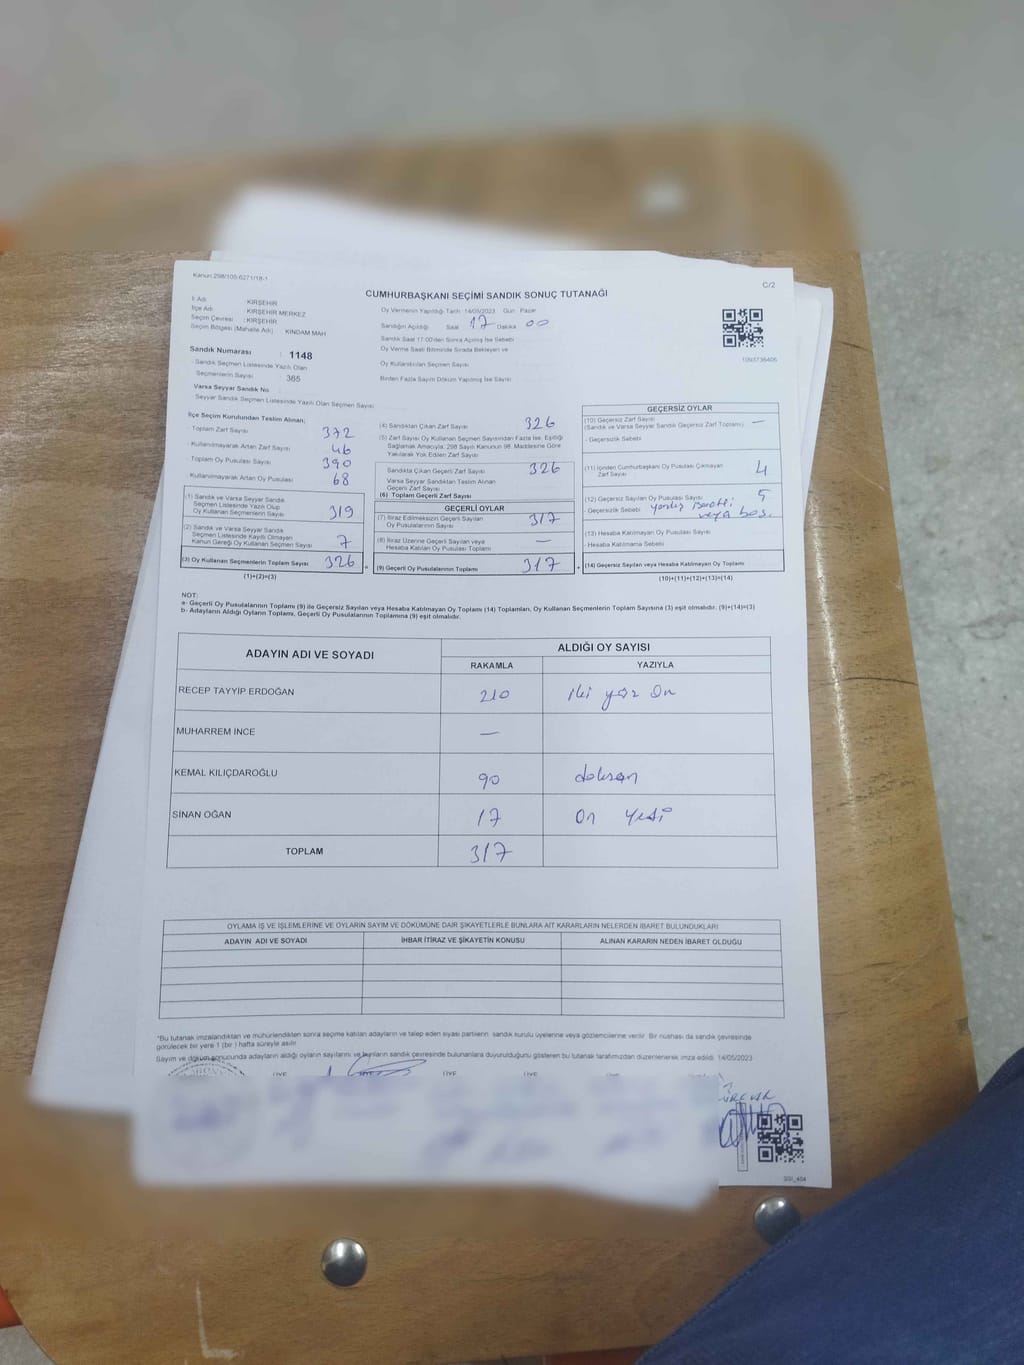 Kanun:298/105;6271/18-1
C/2
CUMHURBAŞKANI SEÇİMİ SANDIK SONUÇ TUTANAĞI
İl Adı KIRŞEHİR
İlçe Adı KIRŞEHİR MERKEZ
Seçim Çevresi : KIRŞEHİR
Seçim Bölgesi (Mahalle Adı) : KINDAM MAH
Sandık Numarası : 1148
- Sandık Seçmen Listesinde Yazılı Olan
Seçmenlerin Sayısı : 365
Varsa Seyyar Sandık No
Seyyar Sandık Seçmen Listesinde Yazılı Olan Seçmen Sayısı
Oy Vermenin Yapıldığı Tarih: 14/05/2023 Gün: Pazar
Sandığın Açıldığı Saat 17 Dakika 00
Sandık Saat 17:00'den Sonra Açılmış İse Sebebi
Oy Verme Saati Bitiminde Sırada Bekleyen ve
Oy Kullandırılan Seçmen Sayısı
Birden Fazla Sayım Döküm Yapılmış İse Sayısı
1093736406
İlçe Seçim Kurulundan Teslim Alınan;
- Toplam Zarf Sayısı 372
- Kullanılmayarak Artan Zarf Sayısı 46
- Toplam Oy Pusulası Sayısı 390
- Kullanılmayarak Artan Oy Pusulası 68
(1) Sandık ve Varsa Seyyar Sandık
Seçmen Listesinde Yazılı Olup
Oy Kullanan Seçmenlerin Sayısı 319
(2) Sandık ve Varsa Seyyar Sandık
Seçmen Listesinde Kayıtlı Olmayan
Kanun Gereği Oy Kullanan Seçmen Sayısı 7
(3) Oy Kullanan Seçmenlerin Toplam Sayısı 326
(1)+(2)=(3)
(4) Sandıktan Çıkan Zarf Sayısı 326
(5) Zarf Sayısı Oy Kullanan Seçmen Sayısından Fazla İse, Eşitliği
Sağlamak Amacıyla; 298 Sayılı Kanunun 98. Maddesine Göre
Yakılarak Yok Edilen Zarf Sayısı
Sandıkta Çıkan Geçerli Zarf Sayısı 326
Varsa Seyyar Sandıktan Teslim Alınan
Geçerli Zarf Sayısı
(6) Toplam Geçerli Zarf Sayısı
GEÇERLİ OYLAR
(7) İtiraz Edilmeksizin Geçerli Sayılan
Oy Pusulalarının Sayısı 317
(8) İtiraz Üzerine Geçerli Sayılan veya
Hesaba Katılan Oy Pusulası Toplamı —
(9) Geçerli Oy Pusulalarının Toplamı 317
GEÇERSİZ OYLAR
(10) Geçersiz Zarf Sayısı
(Sandık ve Varsa Seyyar Sandık Geçersiz Zarf Toplamı) —
- Geçersizlik Sebebi
(11) İçinden Cumhurbaşkanı Oy Pusulası Çıkmayan
Zarf Sayısı 4
(12) Geçersiz Sayılan Oy Pusulası Sayısı 5
- Geçersizlik Sebebi
veya boş.
(13) Hesaba Katılmayan Oy Pusulası Sayısı
- Hesaba Katılmama Sebebi
(14) Geçersiz Sayılan veya Hesaba Katılmayan Oy Toplamı
(10)+(11)+(12)+(13)=(14)
NOT:
a- Geçerli Oy Pusulalarının Toplamı (9) ile Geçersiz Sayılan veya Hesaba Katılmayan Oy Toplamı (14) Toplamları, Oy Kullanan Seçmenlerin Toplam Sayısına (3) eşit olmalıdır. (9)+(14)=(3)
b- Adayların Aldığı Oyların Toplamı, Geçerli Oy Pusulalarının Toplamına (9) eşit olmalıdır.
ADAYIN ADI VE SOYADI ALDIĞI OY SAYISI
RAKAMLA YAZIYLA
RECEP TAYYİP ERDOĞAN 210 iki yüz on
MUHARREM İNCE —
KEMAL KILIÇDAROĞLU 90 doksan
SİNAN OĞAN 17 on yedi
TOPLAM 317
OYLAMA İŞ VE İŞLEMLERİNE VE OYLARIN SAYIM VE DÖKÜMÜNE DAİR ŞİKAYETLERLE BUNLARA AİT KARARLARIN NELERDEN İBARET BULUNDUKLARI
ADAYIN ADI VE SOYADI İHBAR İTİRAZ VE ŞİKAYETİN KONUSU ALINAN KARARIN NEDEN İBARET OLDUĞU
*Bu tutanak imzalandıktan ve mühürlendikten sonra seçime katılan adayların ve talep eden siyasi partilerin sandık kurulu üyelerine veya gözlemcilerine verilir. Bir nüshası da sandık çevresinde
görülecek bir yere 1 (bir) hafta süreyle asılır.
Sayım ve döküm sonucunda adayların aldığı oyların sayılarını ve bunların sandık çevresinde bulunanlara duyurulduğunu gösteren bu tutanak tarafımızdan düzenlenerek imza edildi. 14/05/2023
ÜYE ÜYE ÜYE ÜYE